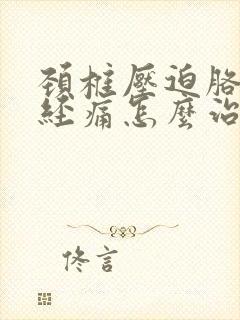 頚椎壓迫胳
経痛怎麼治
佟言